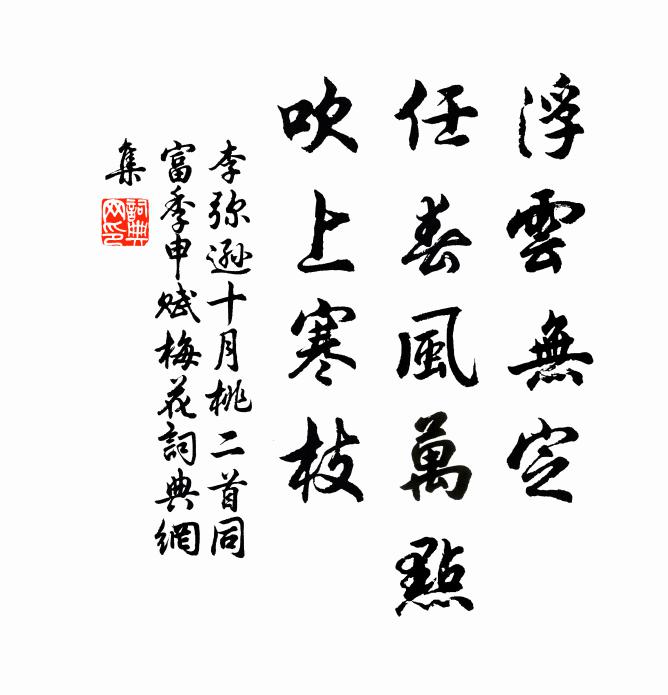 浮雲無定
任春風萬點
吹上寒枝
李弥遜十月桃二首同
富季申賦梅花詞典網
集
詞典
网印